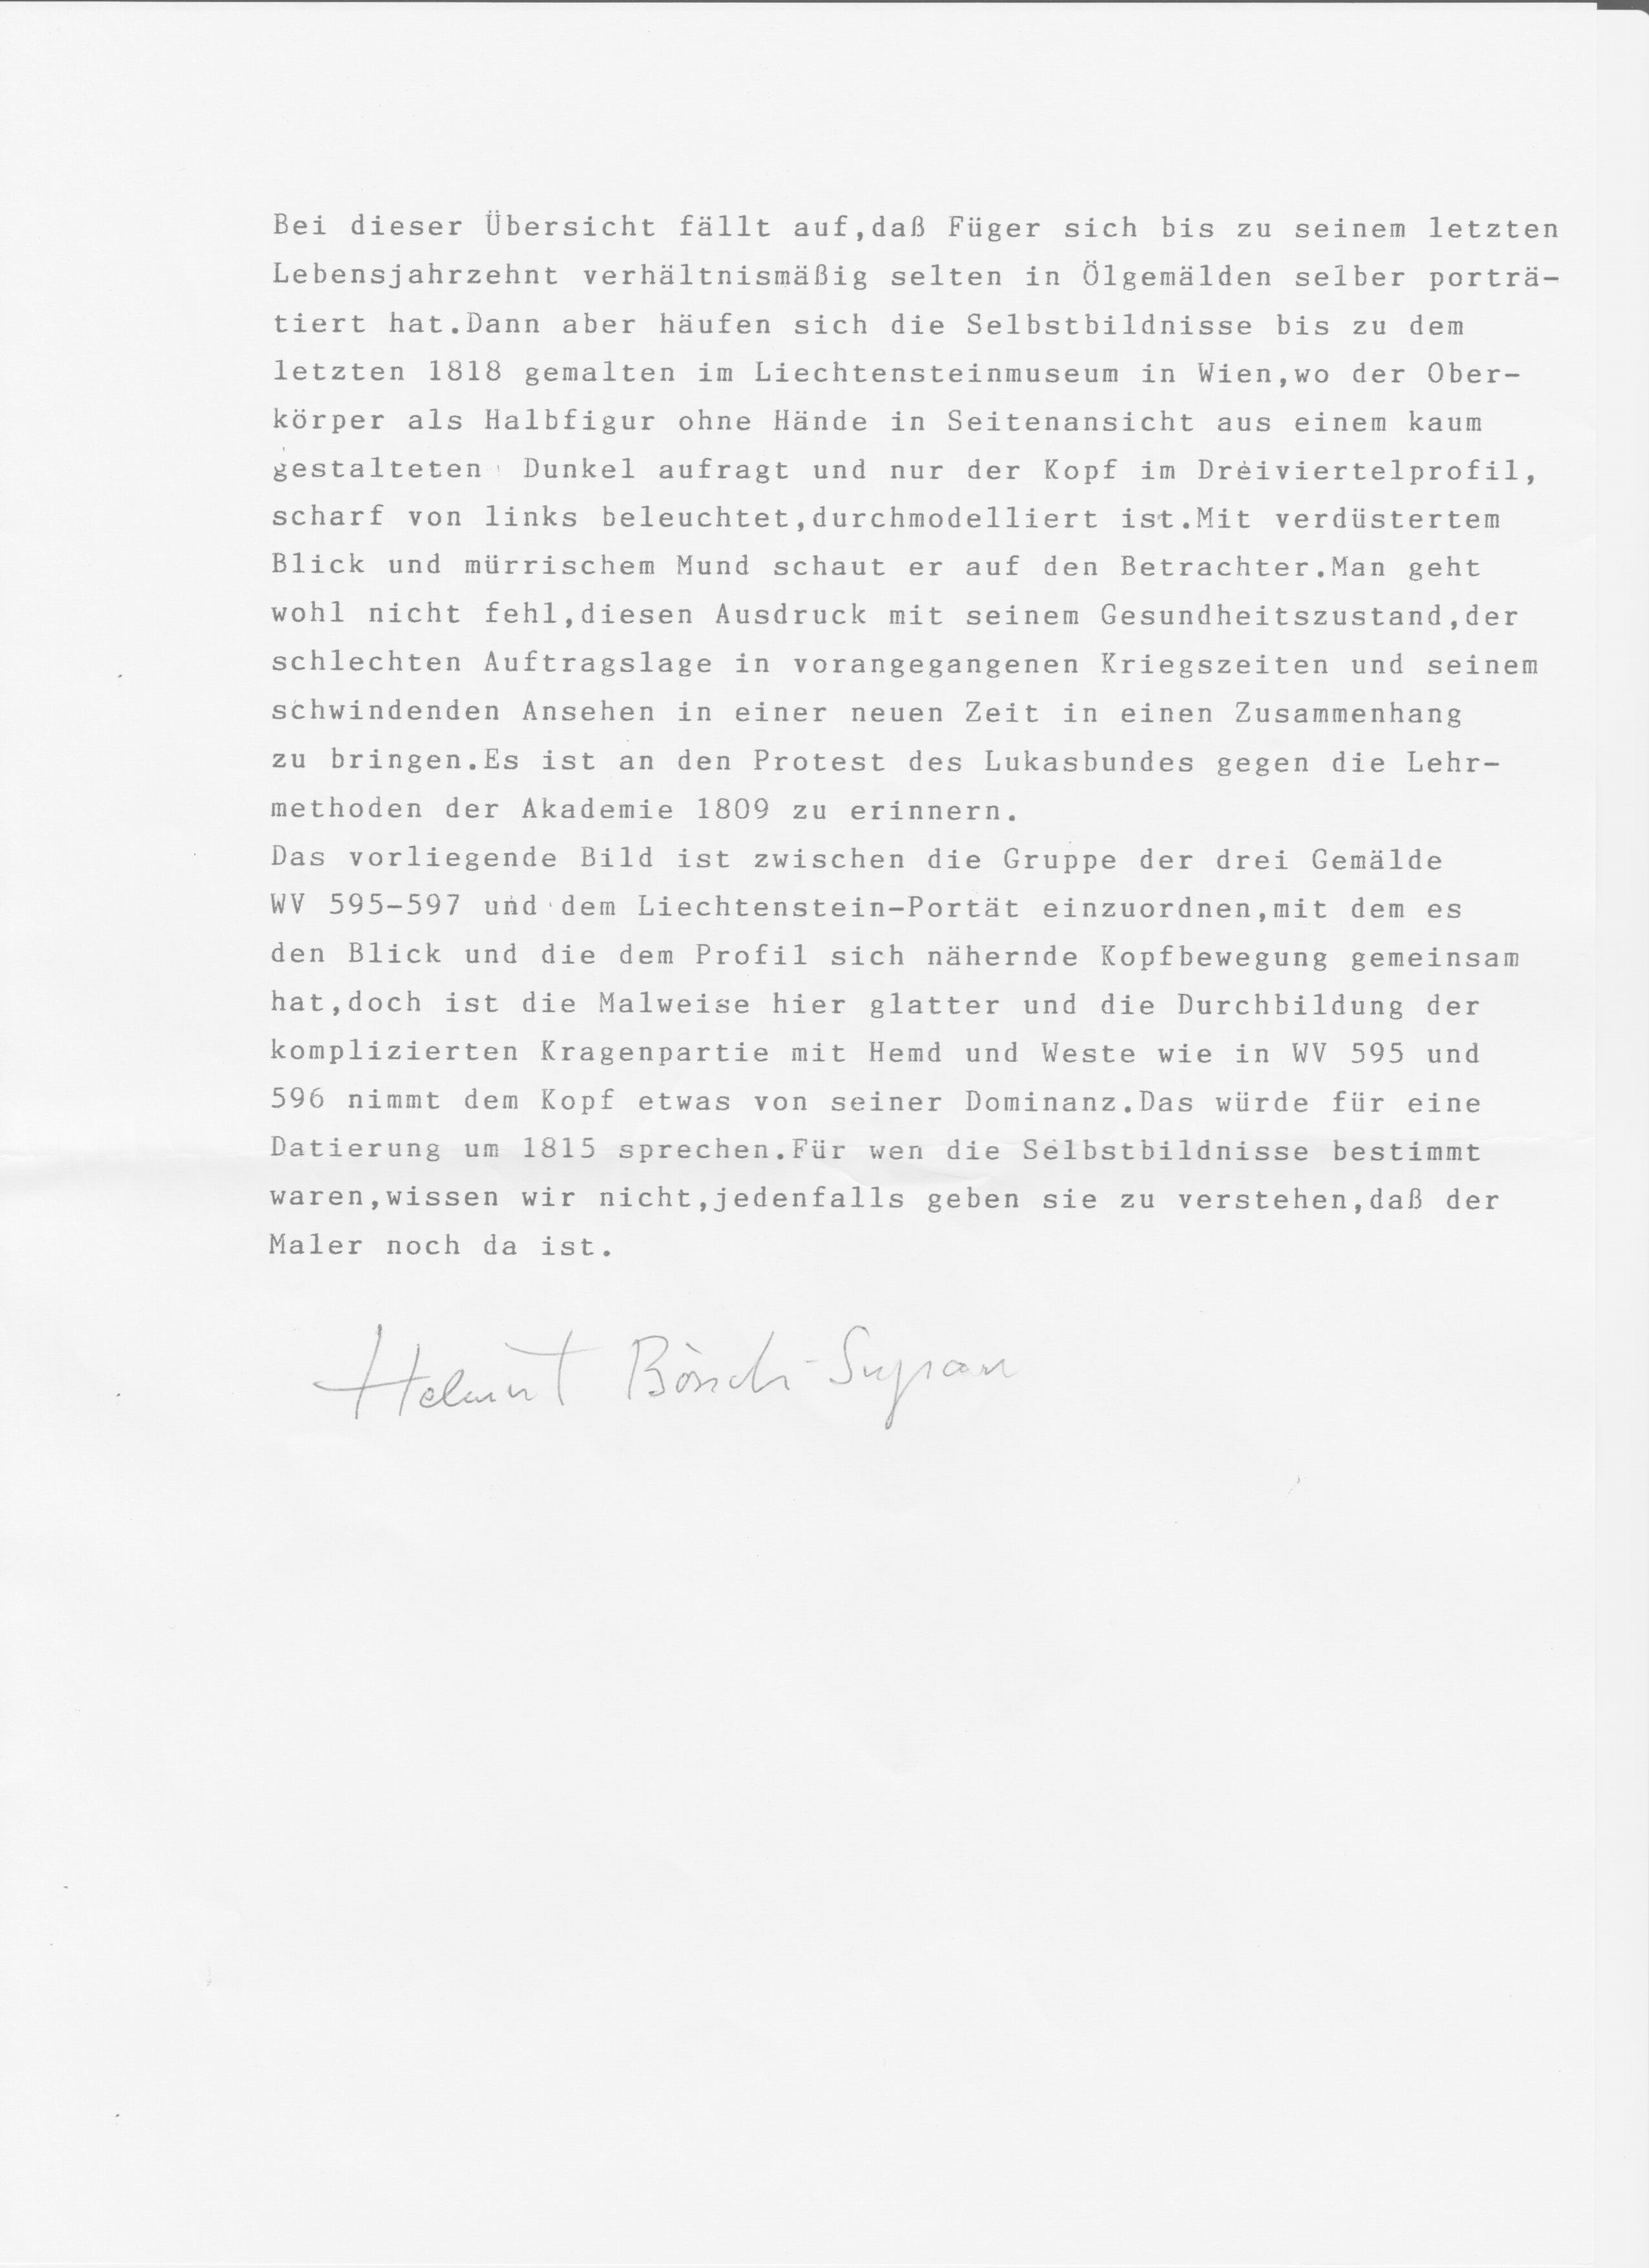 Bei dieser Übersicht fällt auf,daß Füger sich bis zu seinem letzten
Lebensjahrzehnt verhältnismäßig selten in Ölgemälden selber porträ-
tiert hat.Dann aber häufen sich die Selbstbildnisse bis zu dem
letzten 1818 gemalten im Liechtensteinmuseum in Wien,wo der Ober-
körper als Halbfigur ohne Hände in Seitenansicht aus einem kaum
gestalteten Dunkel aufragt und nur der Kopf im Dreiviertelprofil,
scharf von links beleuchtet,durchmodelliert ist.Mit verdüstertem
Blick und mürrischem Mund schaut er auf den Betrachter.Man geht
wohl nicht fehl,diesen Ausdruck mit seinem Gesundheitszustand,der
schlechten Auftragslage in vorangegangenen Kriegszeiten und seinem
schwindenden Ansehen in einer neuen Zeit in einen Zusammenhang
zu bringen.Es ist an den Protest des Lukasbundes gegen die Lehr-
methoden der Akademie 1809 zu erinnern.
Das vorliegende Bild ist zwischen die Gruppe der drei Gemälde
WV 595-597 und dem Liechtenstein-Portät einzuordnen,mit dem es
den Blick und die dem Profil sich nähernde Kopfbewegung gemeinsam
hat,doch ist die Malweise hier glatter und die Durchbildung der
komplizierten Kragenpartie mit Hemd und Weste wie in WV 595 und
596 nimmt dem Kopf etwas von seiner Dominanz.Das würde für eine
Datierung um 1815 sprechen.Für wen die Selbstbildnisse bestimmt
waren,wissen wir nicht,jedenfalls geben sie zu verstehen,daß der
Maler noch da ist.
Helmut Börsch-Supan